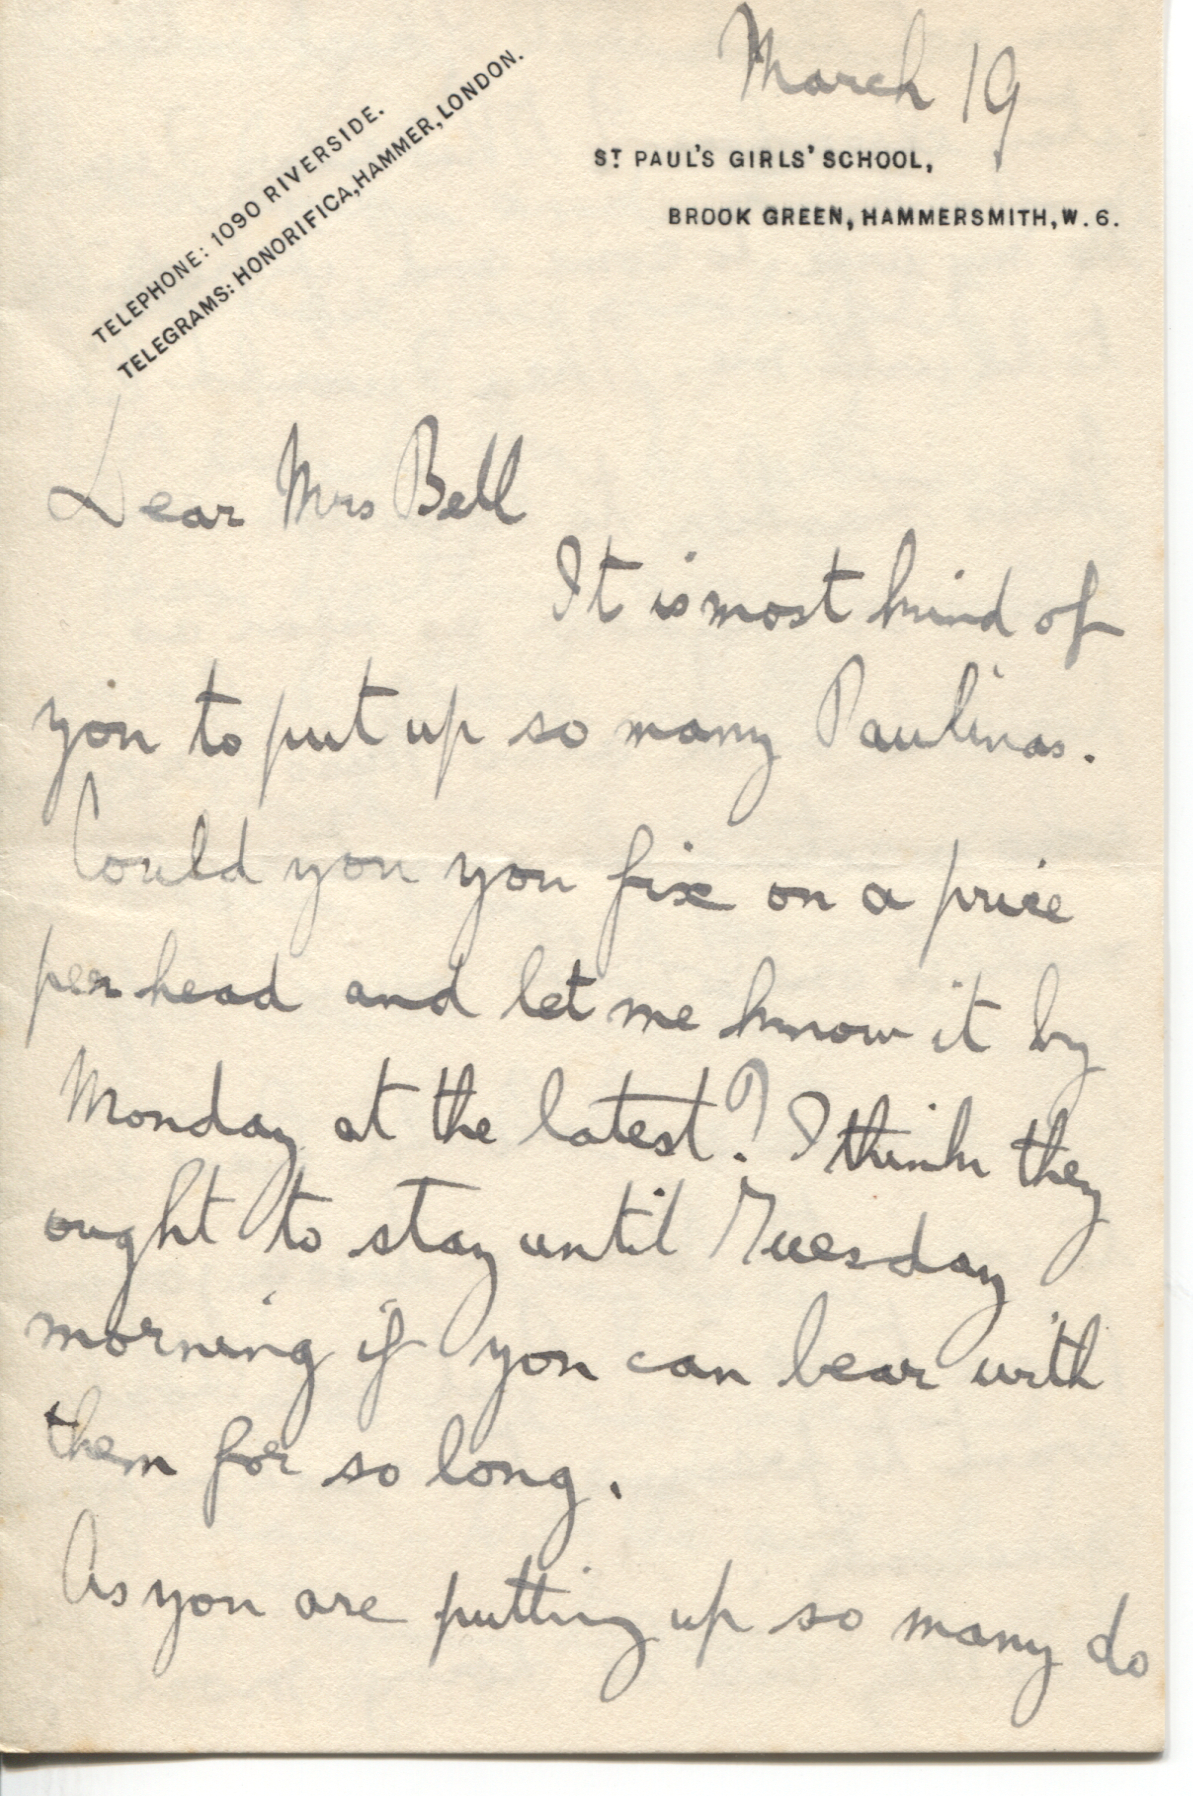 March 19
TELEPHONE: 1090 RIVERSIDE.
TELEGRAMS: HONORIFICA, HAMMER, LONDON.
ST PAUL'S GIRLS' SCHOOL,
BROOK GREEN, HAMMERSMITH, W. 6.
Dear Mrs Bell
It is most kind of
you to put up so many Paulinas.
Could you you fix on a price
per head and let me know it by
Monday at the latest? I think they
ought to stay until Tuesday
morning if you can bear with
them for so long.
As you are putting up so many do